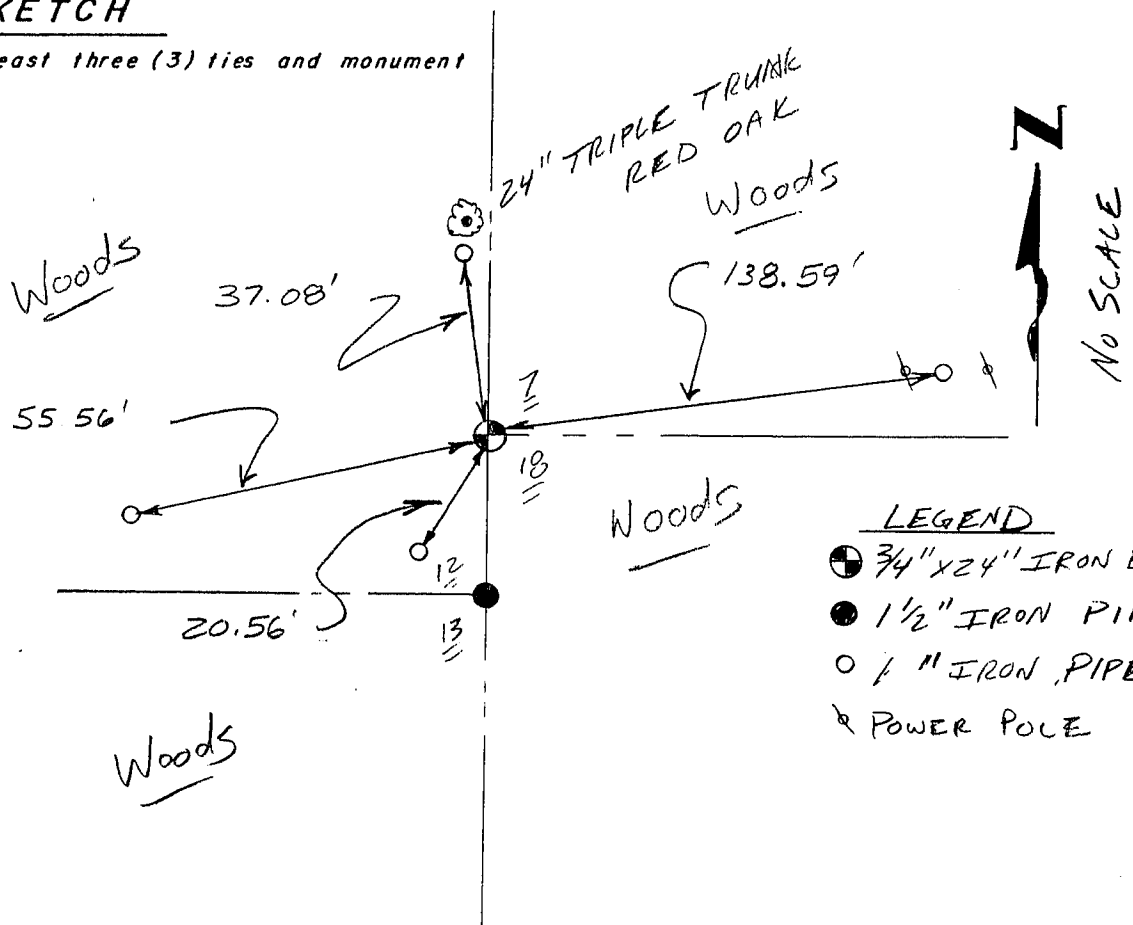 KETCH
east three (3) ties and monument
24" TRIPLE TRUNK
RED OAK
Woods
Woods
37.08'
138.59'
N
No SCALE
55.56'
7
18
Woods
12
13
20.56'
LEGEND
3/4"x24" IRON
1 1/2" IRON PI
1" IRON PIPE
POWER POLE
Woods